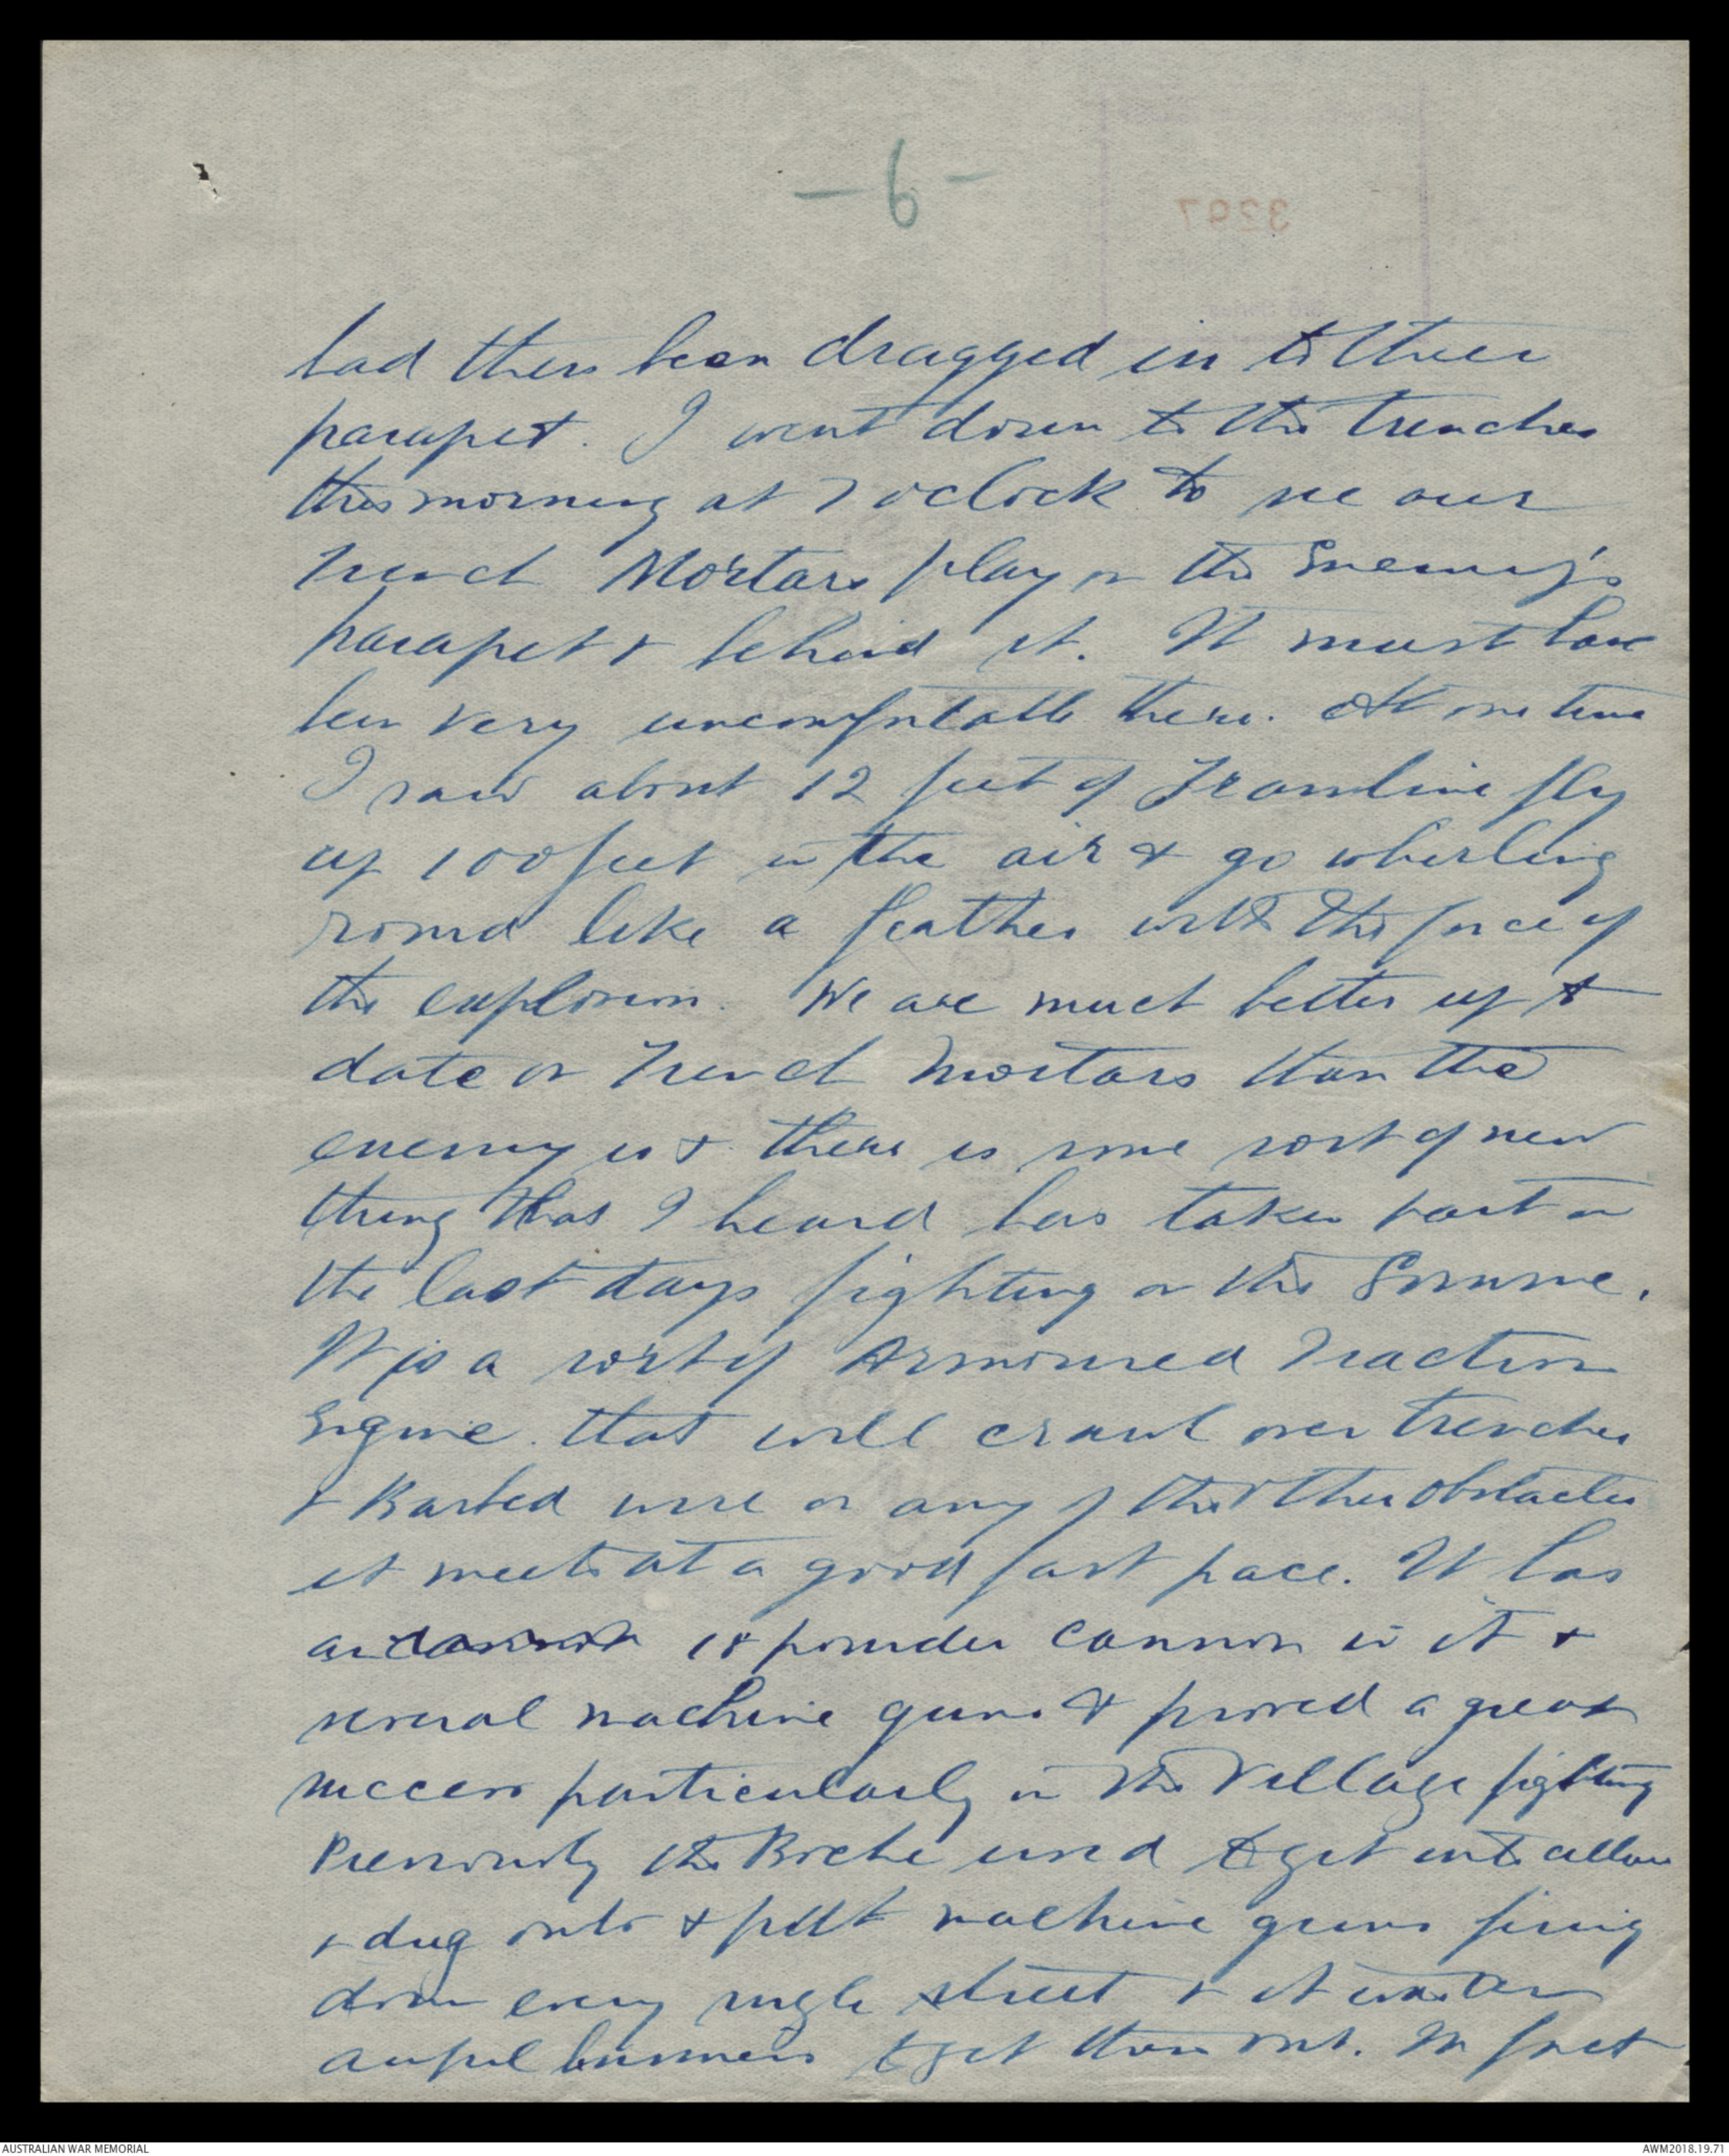 - 6 -
3297
had then been dragged in to their
parapet. I went down to the trenches
this morning at 7 oclock to see our
Trench Mortars play on the Enemy's
parapet & behind it. It must have
been very uncomfortable there. At one time
I saw about 12 feet of Tramline fly
up 100 feet in the air & go whirling
round like a feather with the force of
the explosion. We are much better up to
date in Trench Mortars than the
enemy is & there is some sort of new
thing that I heard has taken part in
the last days fighting on the Somme.
It is a sort of Armoured Traction
Engine that will crawl over trenches
& Barbed wire or any of the other obstacles
it meets at a good fast pace. It has
an cannon 18 pounder cannon in it &
several machine guns & proved a great
success particularly in the Village fighting
Previously the Boche used to get into cellars
& dug outs & put machine guns firing
down every single street & it was an
awful business to get them out. In fact
AUSTRALIAN WAR MEMORIAL
AWM2018.19.71